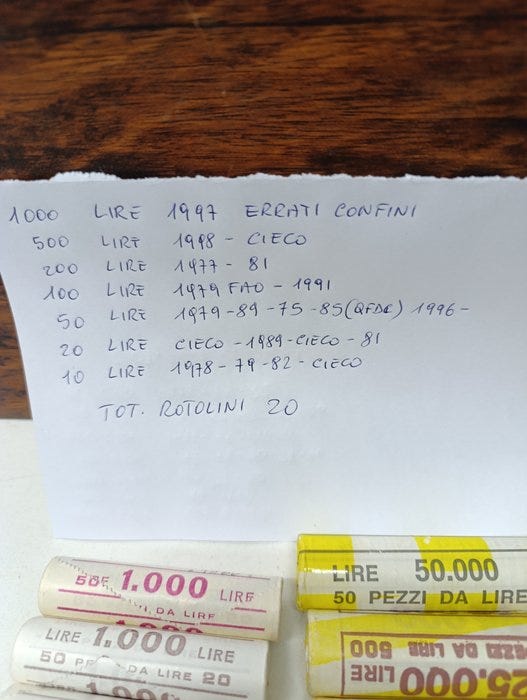 1000 LIRE 1997 ERRATI CONFINI
500 LIRE 1998 - CIECO
200 LIRE 1977 - 81
100 LIRE 1979 FAO - 1991
50 LIRE 1979-89-75-85(QFDC) 1996-
20 LIRE CIECO - 1989-CIECO - 81
10 LIRE 1978 - 79-82-CIECO
TOT. ROTOLINI 20
LIRE 50.000
50 PEZZI DA LIRE
1.000 LIRE
DA LIRE
LIRE 1.000 LIRE
50 DA LIRE 20
PEZZI DA LIRE 500
5.000 LIRE
1.000